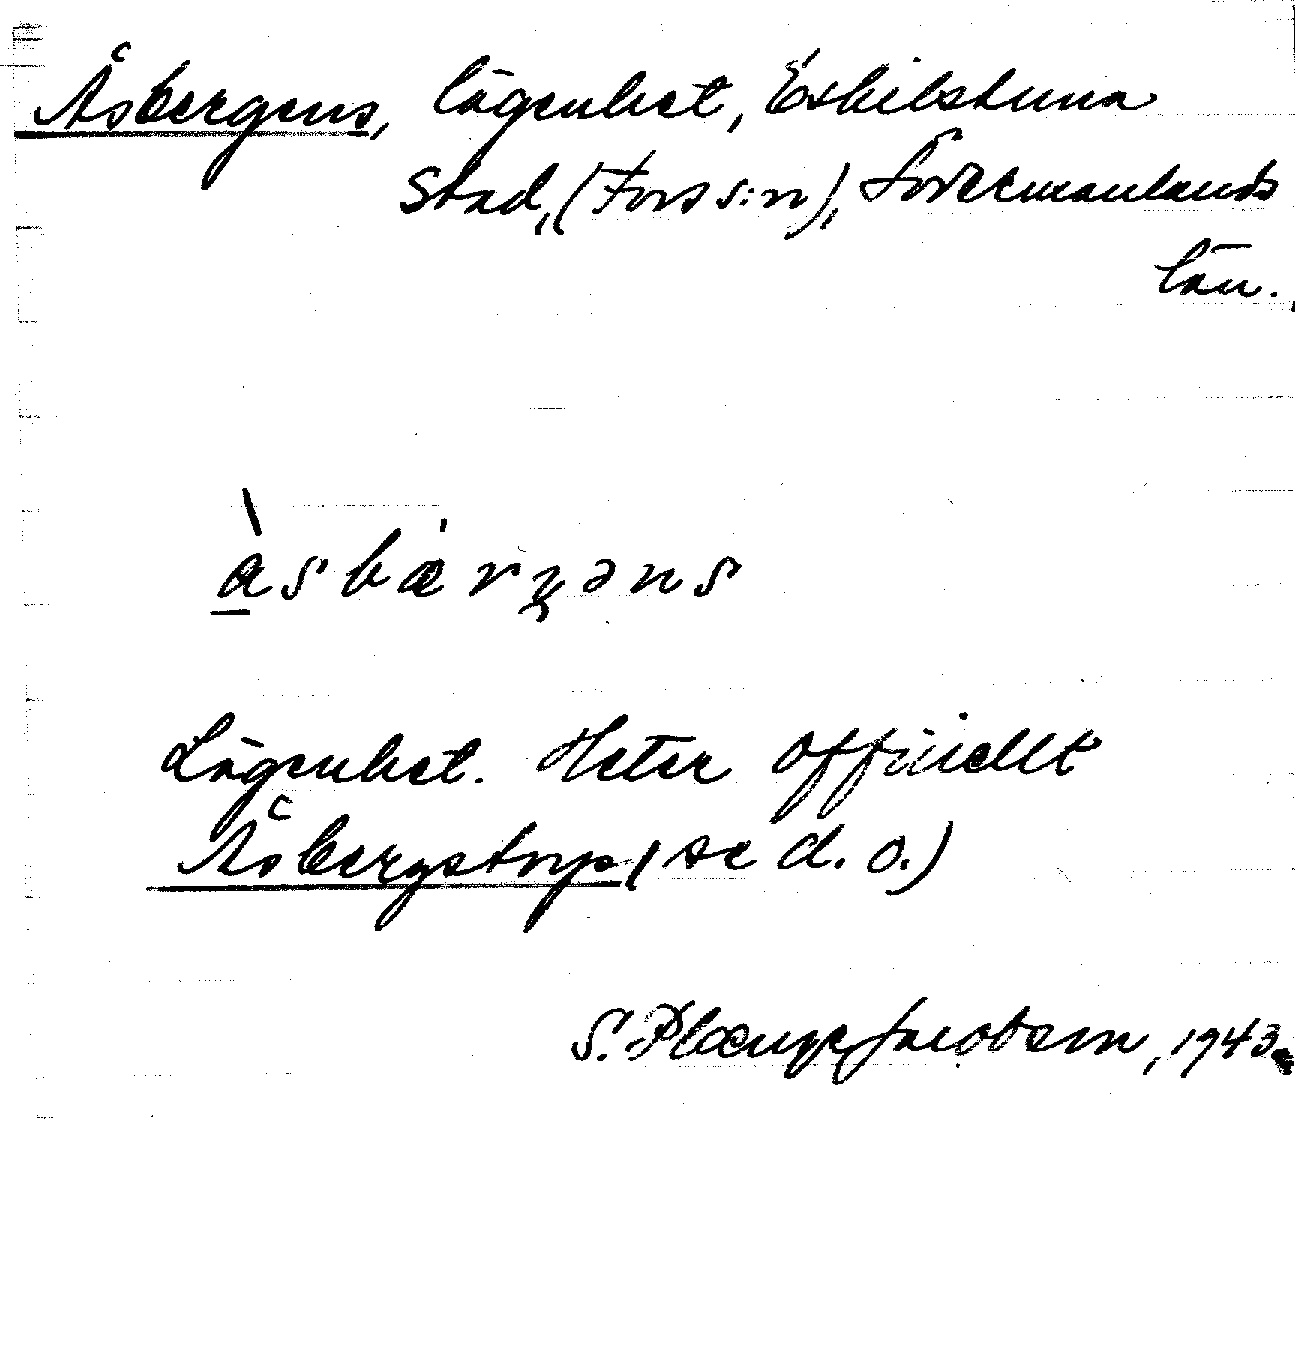 Åsbergens, lägenhet, Eskilstuna
Stad, (Fors s:n), Södermanlands
län.
a̱̍sbæ̍rɣəns
Lägenhet. Heter officiellt
Åsbergstorp (se d. o.)
S. Plænge Jacobson, 1943.